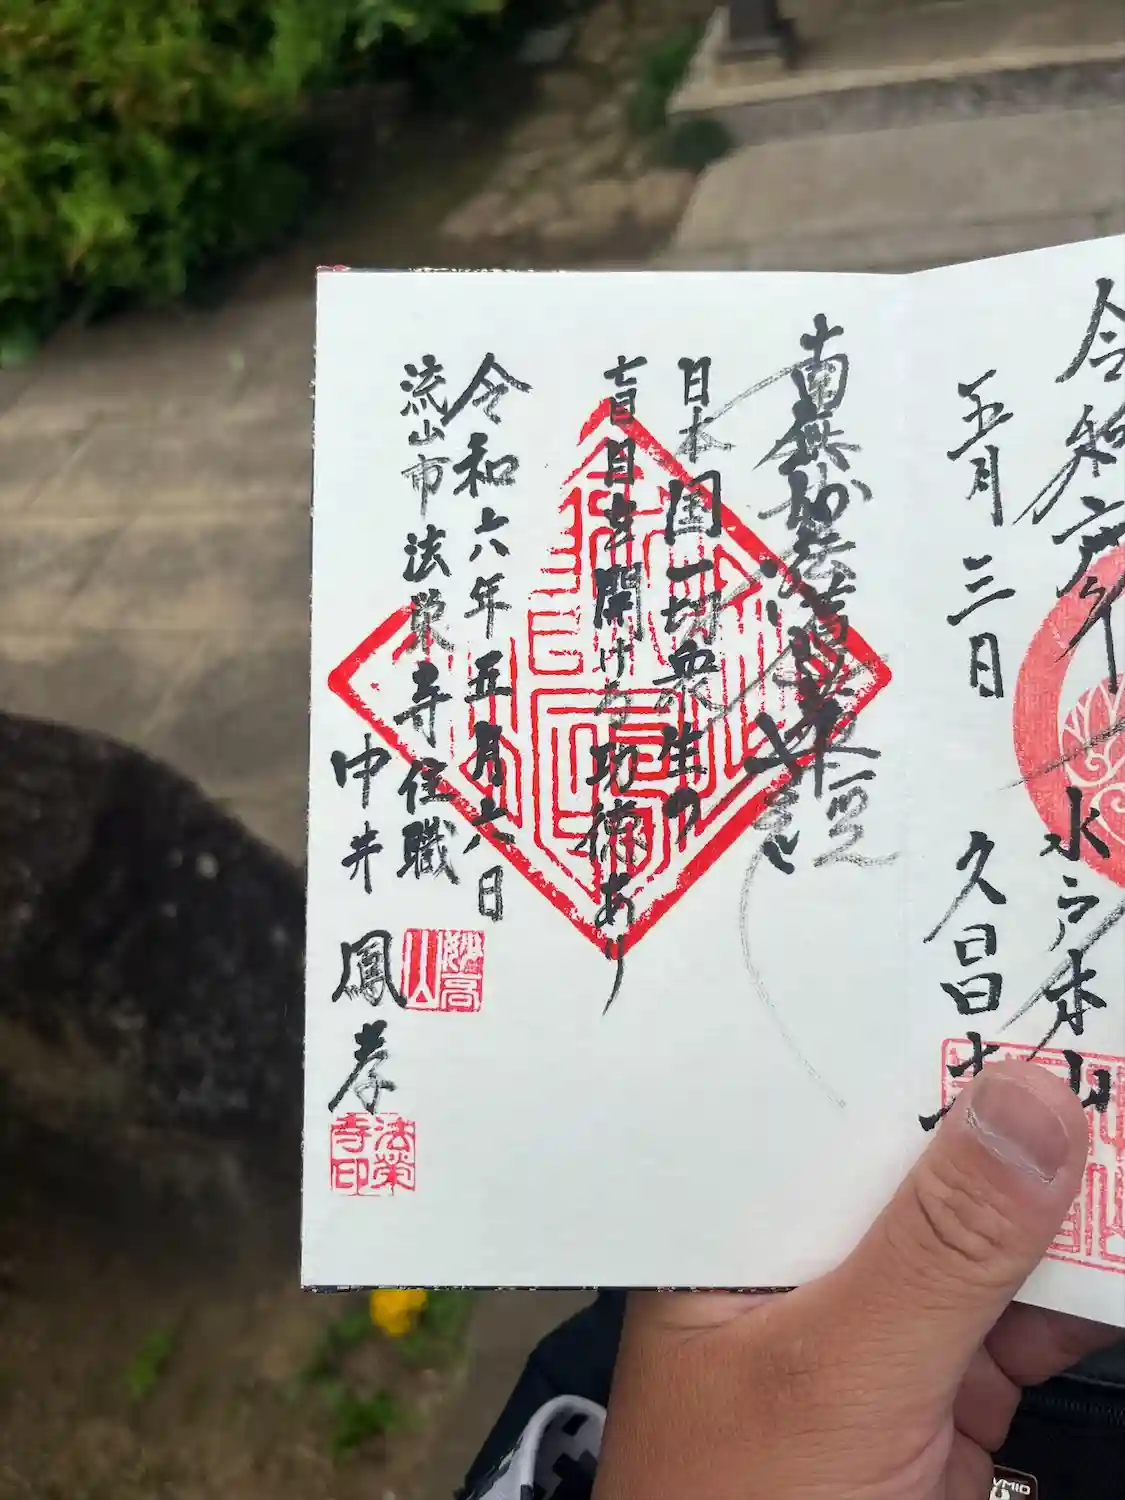 令和六年
五月三日
水戸本山
久昌寺
南無妙法蓮華経
日本国一切衆生の
盲目を開ける功徳あり
令和六年五月六日
流山市法栄寺住職
中井鳳孝
妙高山
法榮寺印